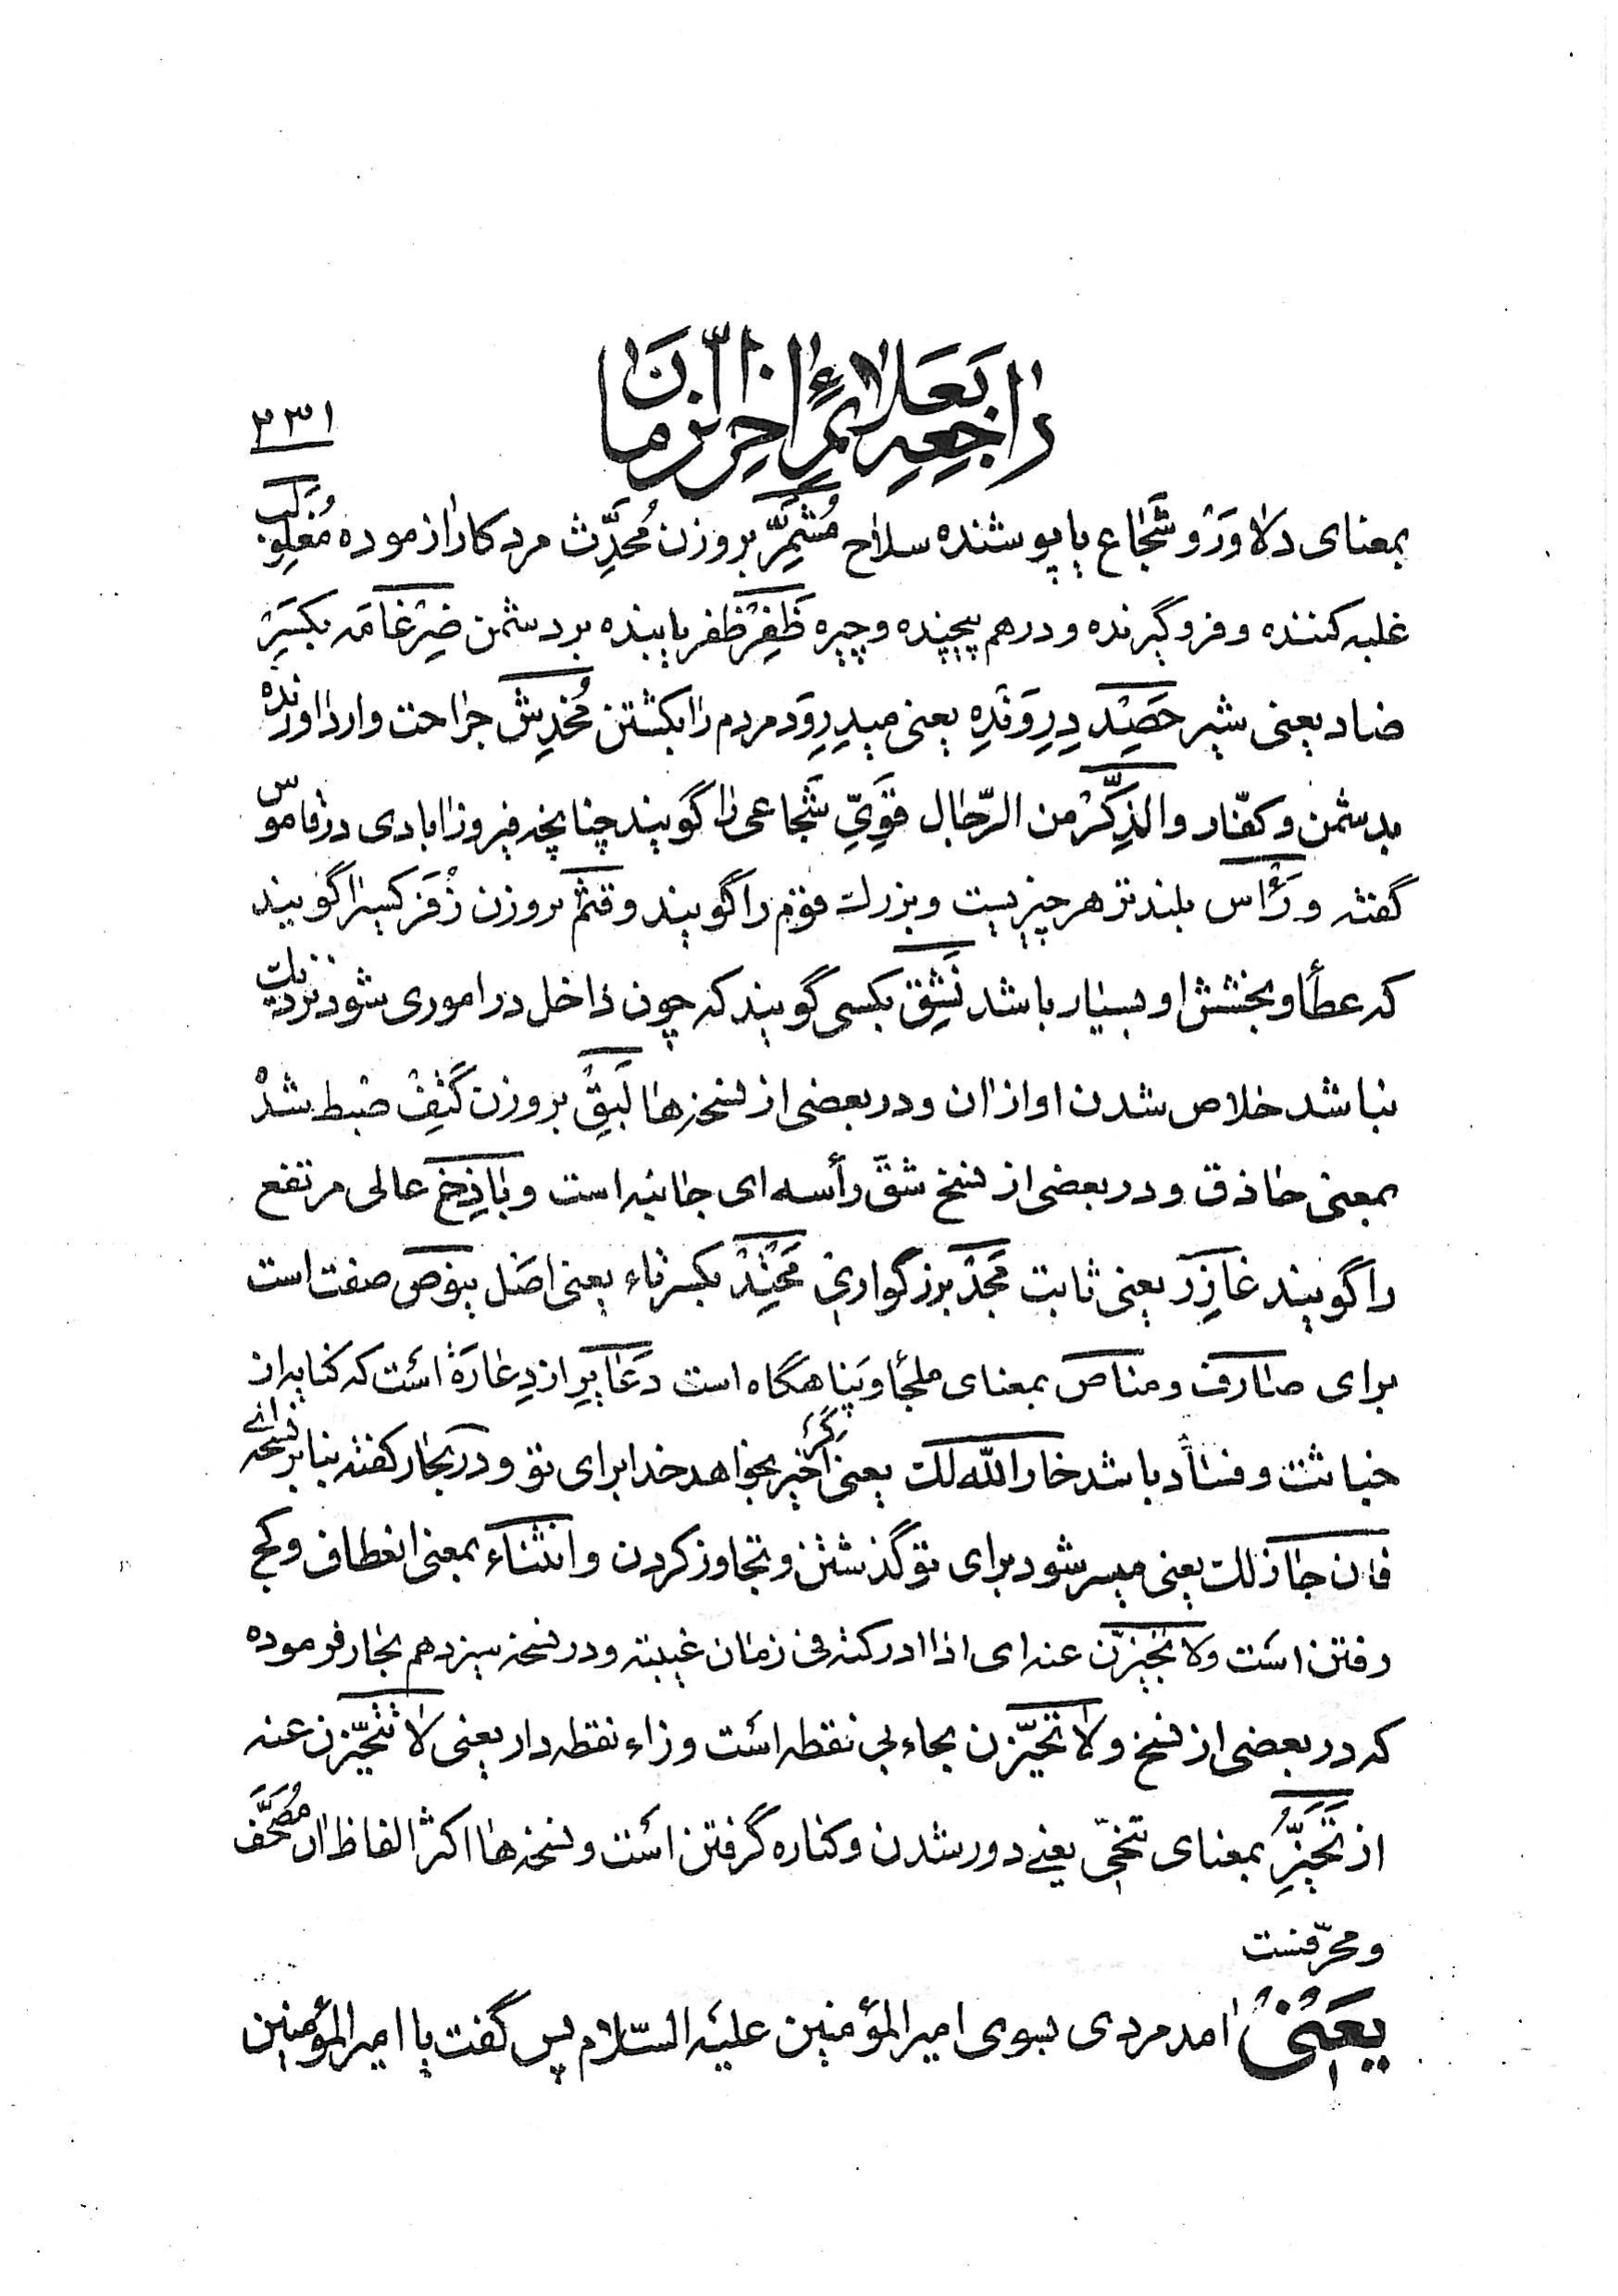 راجعه بعلائم آخر الزمان
۳۳۱
بمعنای دلاور و شجاع یا پوشنده سلاح مُشَمِّر بر وزن مُحَدِّث مرد کار ازموده مُغلَولِب
غلبه کننده و فرو گیرنده و درهم پیچنده و چیره ظَفِر ظفر یابنده بر دشمن ضِرغامَه بکسر
ضاد یعنی شیر حَصِید دِرِوَندِه یعنی میدِرِوَد مردم را بکشتن مُخدِش جراحت وارد اورنده
بدشمن و کفّار و الذِّکَر من الرّجال قَوِیّ شَجاعی را گویند چنانچه فیروزابادی در قاموس
گفته و رَأس بلندتر هر چیزیست و بزرك قوم را گویند و قُثَم بر وزن زُفَر کسیرا گویند
که عطأ و بخشش او بسیار باشد نَشِق بکسی گویند که چون داخل در اموری شود نزدیك
نباشد خلاص شدن او از ان و در بعضی از نسخه‌ها لَبِق بر وزن کَثِف ضبط شدْ
بمعنی حاذق و در بعضی از نسخ شقّ رأسه ای جانبه است و باذِخ عالی مرتفع
را گویند غازِر یعنی ثابت مَجد بزرگواری مَحتِد بکسر تاء یعنی اصل ینوص صفت است
برای صارف و مناص بمعنای ملجأ و پناهگاه است دَعایِر از دِعارَة است که کنایه از
خباثت و فسٰاد باشد خار اللّه لك یعنی اگر خیر بخواهد خدا برای تو و در بحار گفته بنابر نسخه‌ای
فان جاز لك یعنی میسر شود برای تو گذشتن و تجاوز کردن و انثناء بمعنی انعطاف و کج
رفتن است ولا تجیزنّ عنه ای اذا ادرکته فی زمان غیبته و در نسخه سیزدهم بحار فرموده
که در بعضی از نسخ ولا تحیّزن بحاء بی نقطه است و زاء نقطه‌دار یعنی لا تتحیّزن عنه
از تَحَیُّز بمعنای تنحّی یعنی دور شدن و کناره گرفتن است و نسخه‌ها اکثر الفاظ ان مُصَحَّف
و محرّفست
یعنی امد مردی بسوی امیرالمؤمنین علیه السّلام پس گفت یا امیرالمؤمنین